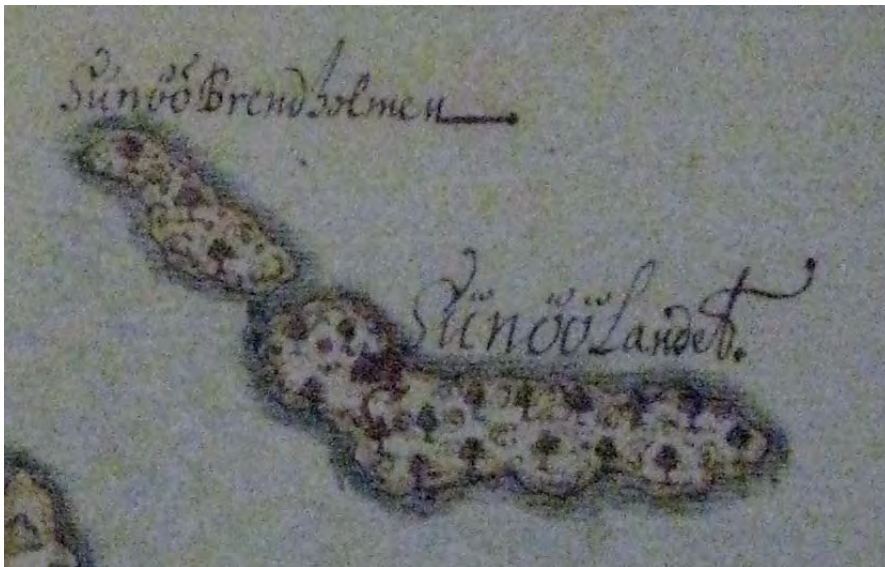 SünööBrendholmen
Sünöö Landet.